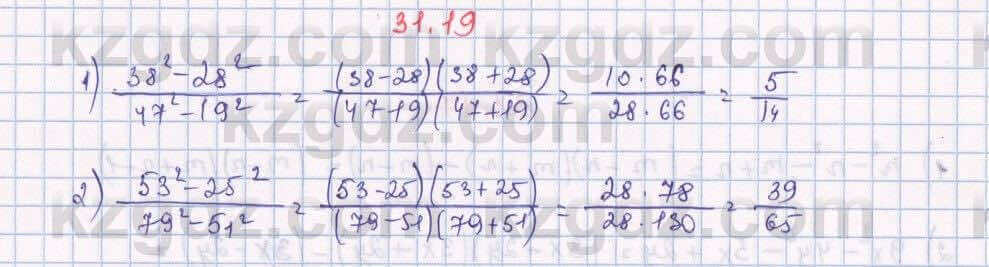 31.19
1) (38² - 28²)/(47² - 19²) = ((38-28)(38+28))/((47-19)(47+19)) = (10·66)/(28·66) = 5/14
2) (53² - 25²)/(79² - 51²) = ((53-25)(53+25))/((79-51)(79+51)) = (28·78)/(28·130) = 39/65
kzgdz.com